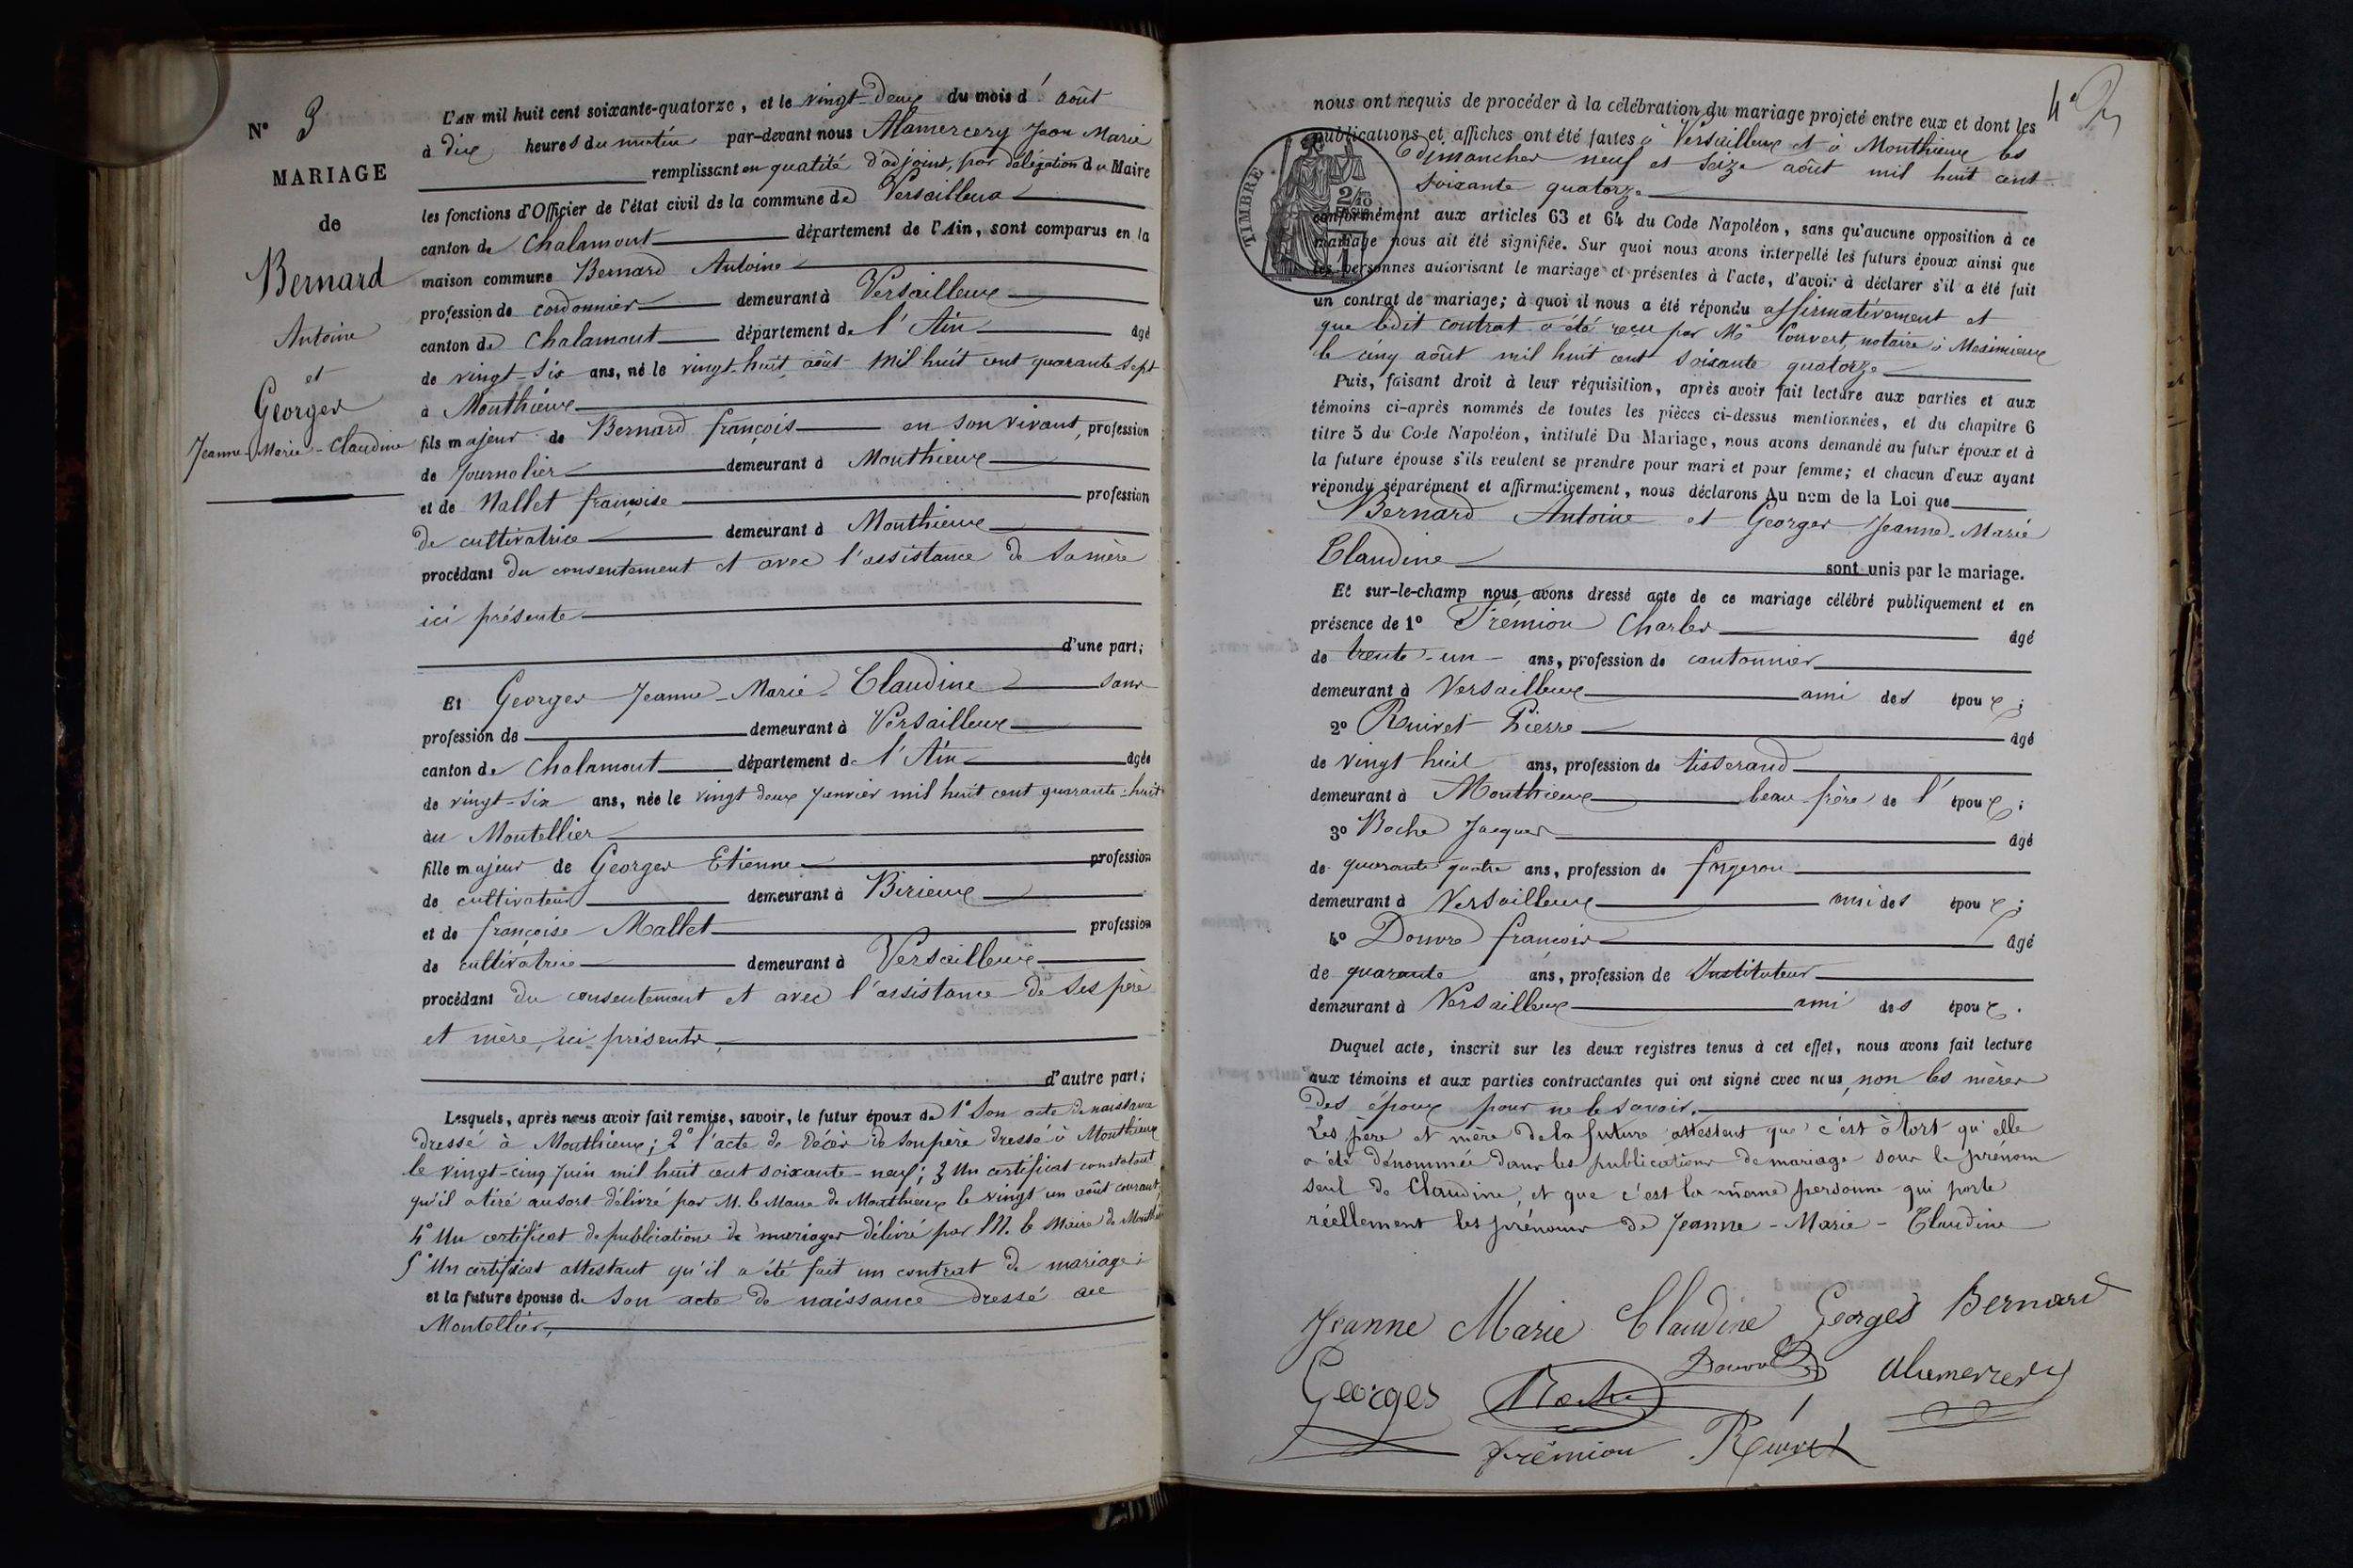 N° 3
MARIAGE
de
Bernard
Antoine
et
Georges
Jeanne-Marie-Claudine
L'AN mil huit cent soixante-quatorze, et le vingt-deux du mois d'août
à dix heures du matin par-devant nous Alamercery Jean Marie
remplissant en qualité d'adjoint, par délégation du Maire
les fonctions d'Officier de l'état civil de la commune de Versailleux
canton de Chalamont département de l'Ain, sont comparus en la
maison commune Bernard Antoine
profession de cordonnier demeurant à Versailleux
canton de Chalamont département de l'Ain âgé
de vingt-six ans, né le vingt-huit août mil huit cent quarante sept
à Monthieux
fils majeur de Bernard françois en son vivant, profession
de Journalier demeurant à Monthieux
et de Mallet françoise profession
de cultivatrice demeurant à Monthieux
procédant du consentement et avec l'assistance de sa mère
ici présente
d'une part;
Et Georges Jeanne-Marie-Claudine sans
profession de demeurant à Versailleux
canton de Chalamont département de l'Ain âgée
de vingt-six ans, née le vingt deux Janvier mil huit cent quarante-huit
au Montellier
fille majeur de Georges Etienne profession
de cultivateur demeurant à Birieux
et de françoise Mallet profession
de cultivatrice demeurant à Versailleux
procédant du consentement et avec l'assistance de ses père
et mère, ici présents,
d'autre part;
Lesquels, après nous avoir fait remise, savoir, le futur époux de 1° Son acte de naissance
dressé à Monthieux; 2° l'acte de décès de son père dressé à Monthieux
le vingt-cinq Juin mil huit cent soixante-neuf; 3 Un certificat constatant
qu'il a tiré au sort délivré par M. le Maire de Monthieux le vingt un août courant;
4° Un certificat de publications de mariages délivré par M. le Maire de Monthieux
5° Un certificat attestant qu'il a été fait un contrat de mariage;
et la future épouse de Son acte de naissance dressé au
Montellier,
4e
nous ont requis de procéder à la célébration du mariage projeté entre eux et dont les
publications et affiches ont été faites à Versailleux et à Monthieux les
dimanches neuf et seize août mil huit cent
soixante quatorze
TIMBRE
conformément aux articles 63 et 64 du Code Napoléon, sans qu'aucune opposition à ce
mariage nous ait été signifiée. Sur quoi nous avons interpellé les futurs époux ainsi que
les personnes autorisant le mariage et présentes à l'acte, d'avoir à déclarer s'il a été fait
un contrat de mariage; à quoi il nous a été répondu affirmativement et
que ledit contrat a été reçu par Me Convert, notaire à Meximieux
le cinq août mil huit cent soixante quatorze
Puis, faisant droit à leur réquisition, après avoir fait lecture aux parties et aux
témoins ci-après nommés de toutes les pièces ci-dessus mentionnées, et du chapitre 6
titre 5 du Code Napoléon, intitulé Du Mariage, nous avons demandé au futur époux et à
la future épouse s'ils veulent se prendre pour mari et pour femme; et chacun d'eux ayant
répondu séparément et affirmativement, nous déclarons Au nom de la Loi que
Bernard Antoine et Georges Jeanne-Marie
Claudine sont unis par le mariage.
Et sur-le-champ nous avons dressé acte de ce mariage célébré publiquement et en
présence de 1° Frémion Charles âgé
de trente-un ans, profession de cantonnier
demeurant à Versailleux ami des époux;
2° Ruivet Pierre âgé
de vingt huit ans, profession de tisserand
demeurant à Monthieux beau-frère de l'époux;
3° Roche Jacques âgé
de quarante quatre ans, profession de forgeron
demeurant à Versailleux ami des époux;
4° Douvre françois âgé
de quarante ans, profession de Instituteur
demeurant à Versailleux ami des époux.
Duquel acte, inscrit sur les deux registres tenus à cet effet, nous avons fait lecture
aux témoins et aux parties contractantes qui ont signé avec nous, non les mères
des époux pour ne le savoir.
Les père et mère de la future attestent que c'est à tort qu'elle
a été dénommée dans les publications de mariage sous le prénom
seul de Claudine, et que c'est la même personne qui porte
réellement les prénoms de Jeanne-Marie-Claudine
Jeanne Marie Claudine Georges Bernard
Georges Roche Douvre Alamercery
frémion Ruivet